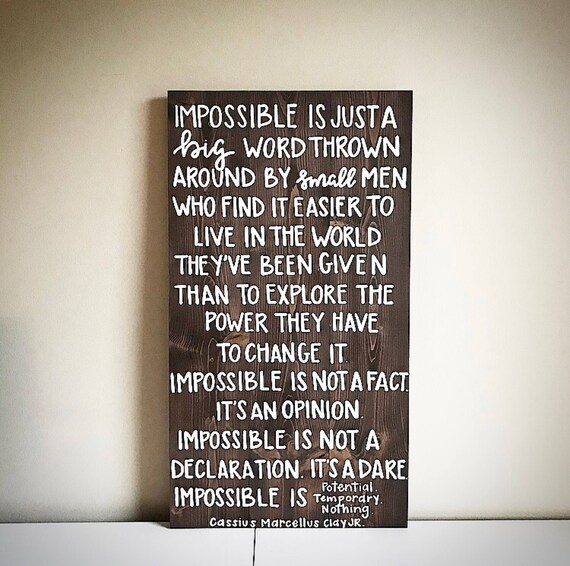 IMPOSSIBLE IS JUST A
big WORD THROWN
AROUND BY small MEN
WHO FIND IT EASIER TO
LIVE IN THE WORLD
THEY'VE BEEN GIVEN
THAN TO EXPLORE THE
POWER THEY HAVE
TO CHANGE IT.
IMPOSSIBLE IS NOT A FACT.
IT'S AN OPINION.
IMPOSSIBLE IS NOT A
DECLARATION. IT'S A DARE.
IMPOSSIBLE IS Potential.
Temporary.
Nothing.
Cassius Marcellus Clay JR.